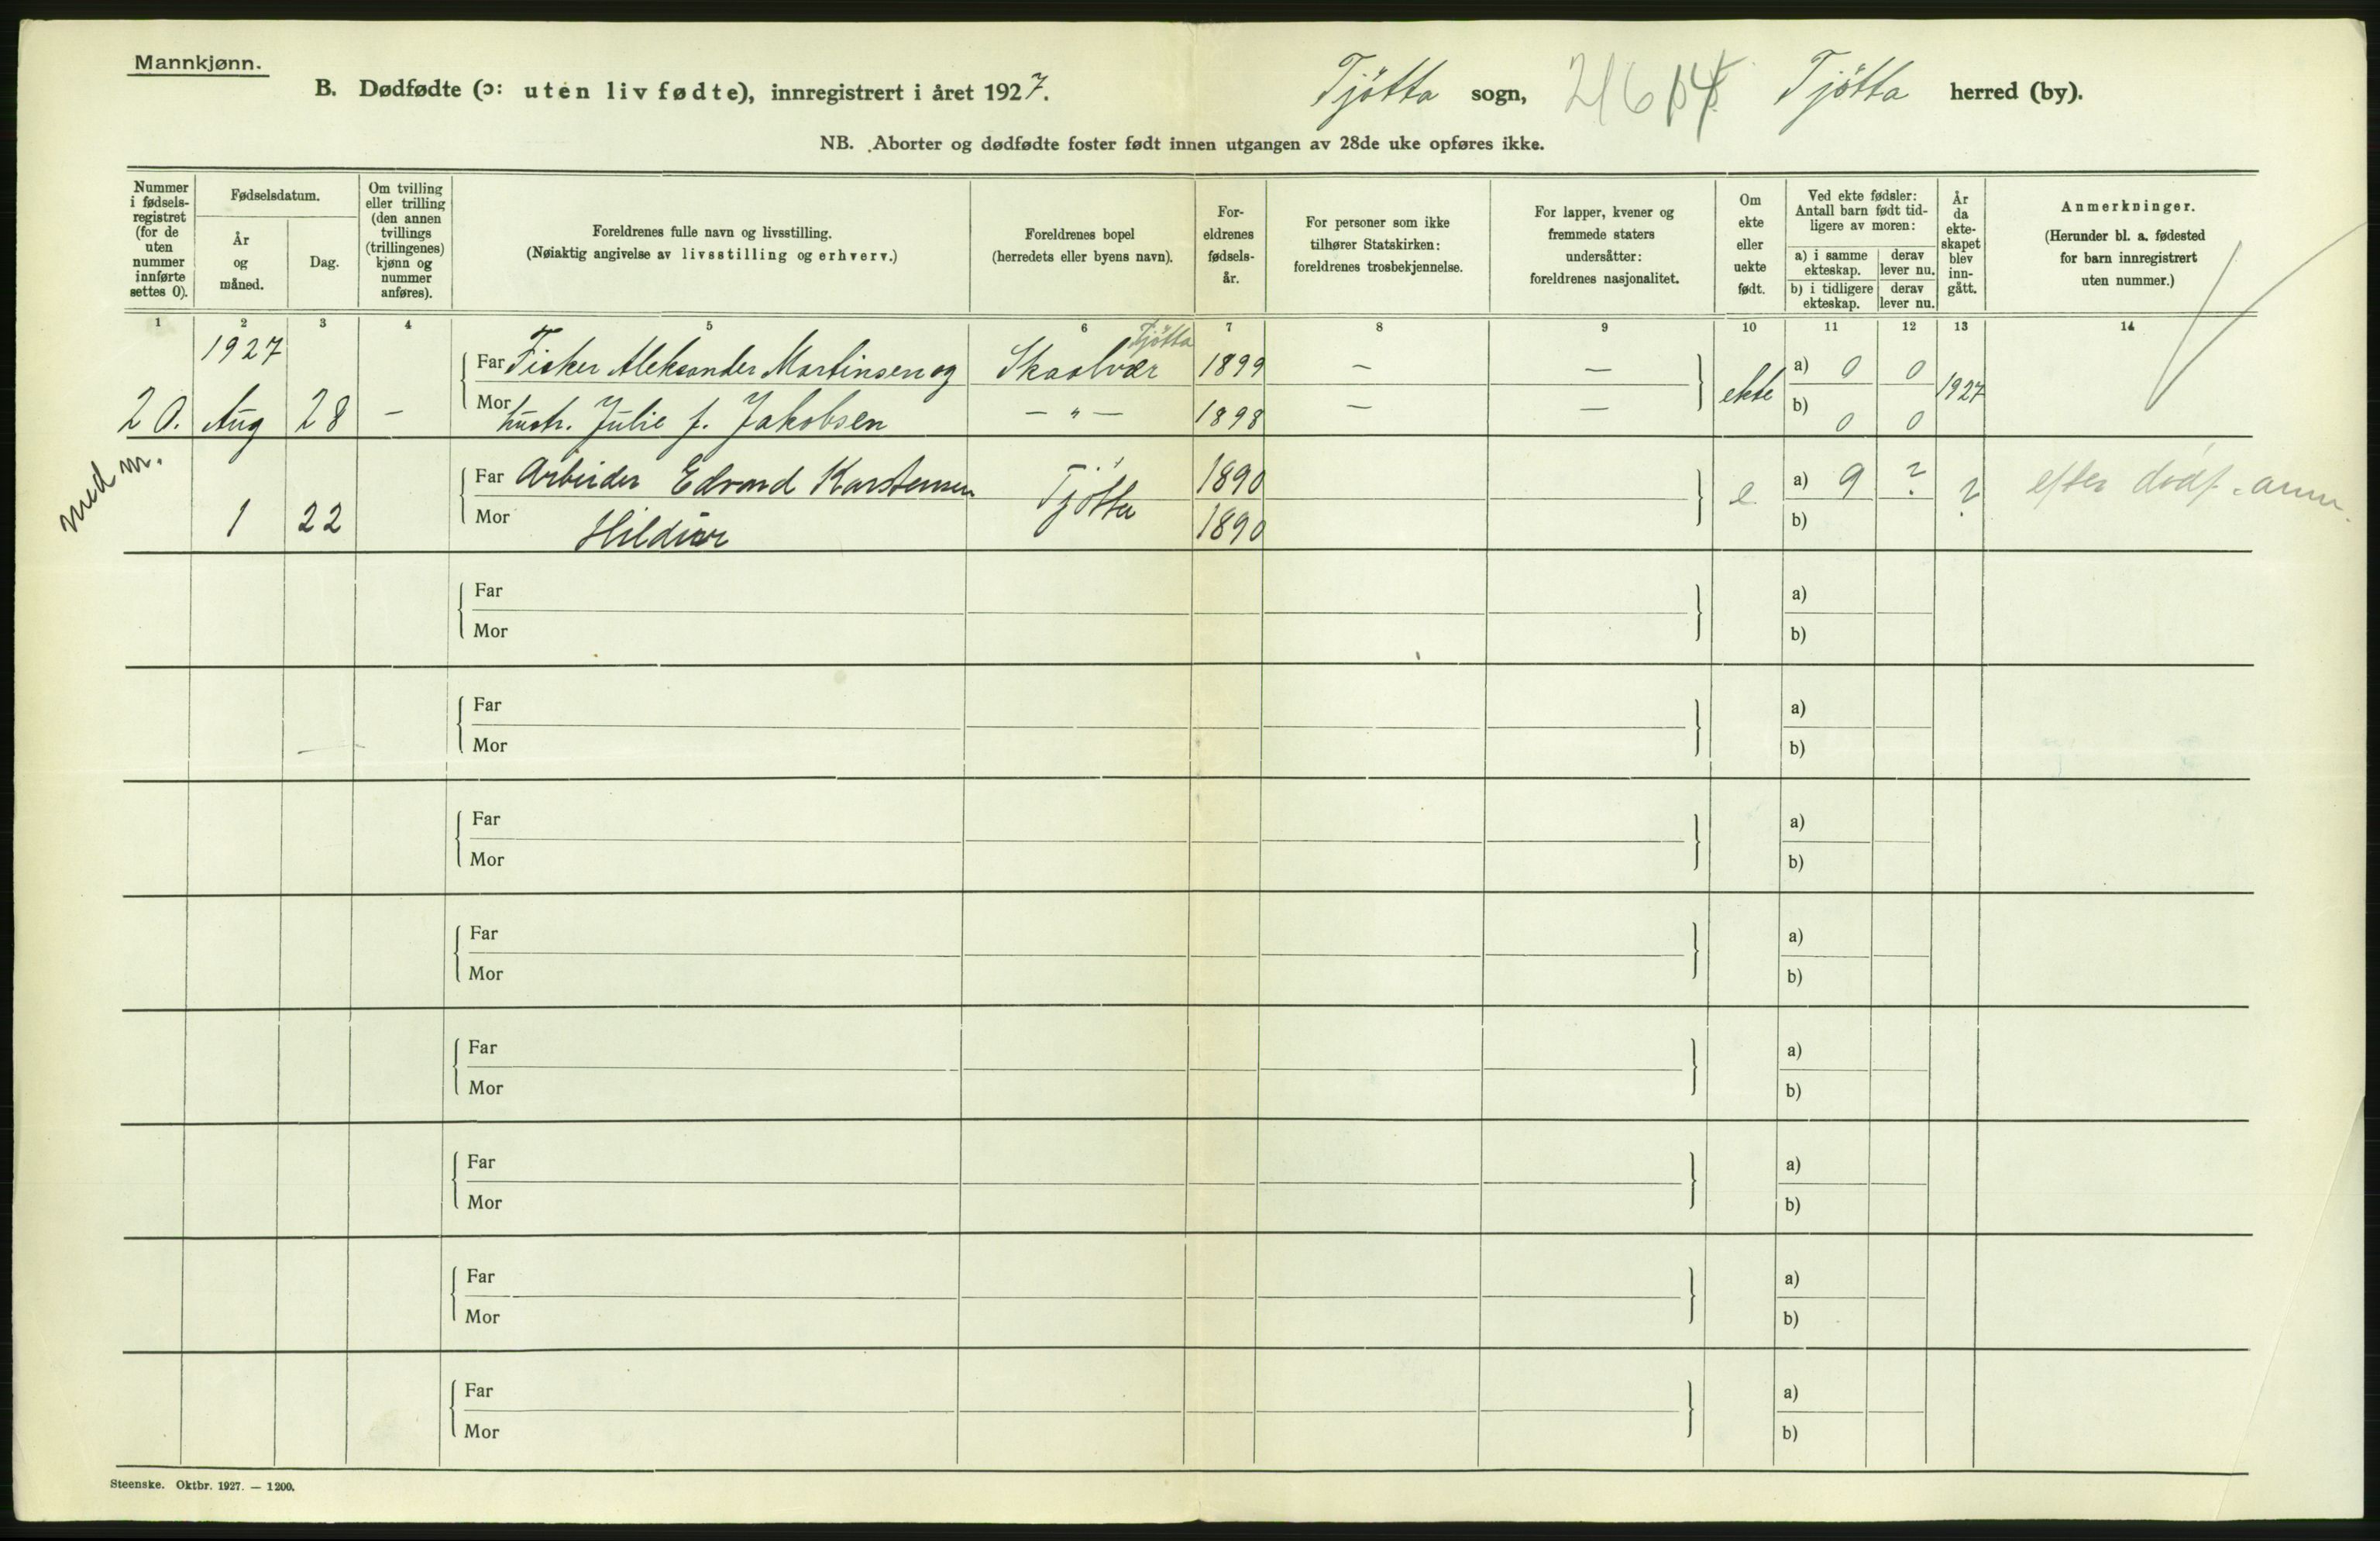 Mannkjønn.
B. Dødfødte (ɔ: uten liv fødte), innregistrert i året 1927.
Tjøtta sogn,
Tjøtta herred (by).
NB. Aborter og dødfødte foster født innen utgangen av 28de uke opføres ikke.
Nummer
i fødsels-
registret
(for de
uten
nummer
innførte
settes 0).
Fødselsdatum.
År
og
måned.
Dag.
Om tvilling
eller trilling
(den annen
tvillings
(trillingenes)
kjønn og
nummer
anføres).
Foreldrenes fulle navn og livsstilling.
(Nøiaktig angivelse av livsstilling og erhverv.)
Foreldrenes bopel
(herredets eller byens navn).
For-
eldrenes
fødsels-
år.
For personer som ikke
tilhører Statskirken:
foreldrenes trosbekjennelse.
For lapper, kvener og
fremmede staters
undersåtter:
foreldrenes nasjonalitet.
Om
ekte
eller
uekte
født.
Ved ekte fødsler:
Antall barn født tid-
ligere av moren:
a) i samme
ekteskap.
derav
lever nu.
b) i tidligere
ekteskap.
derav
lever nu.
År
da
ekte-
skapet
blev
inn-
gått.
Anmerkninger.
(Herunder bl. a. fødested
for barn innregistrert
uten nummer.)
1 2 3 4 5 6 7 8 9 10 11 12 13 14
1927
Tjøtta
Far Fisker Aleksander Martinsen og Skaalvær 1899 — — a) 0 0
20. Aug 28 — Mor hustr. Julie f. Jakobsen — " — 1898 — — ekte b) 0 0 1927
med m.
Far Arbeider Edvard Karstensen Tjøtta 1890 e a) 9 ? ? efter dødf. anm.
1 22 Mor Hildur 1890 b)
Far a)
Mor b)
Far a)
Mor b)
Far a)
Mor b)
Far a)
Mor b)
Far a)
Mor b)
Far a)
Mor b)
Far a)
Mor b)
Far a)
Mor b)
Steenske. Oktbr. 1927. — 1200.